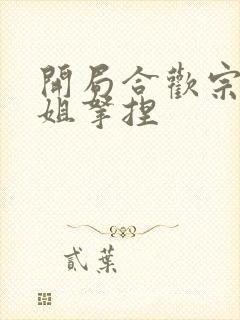 開局合歡宗
姐拏捏
貳葉